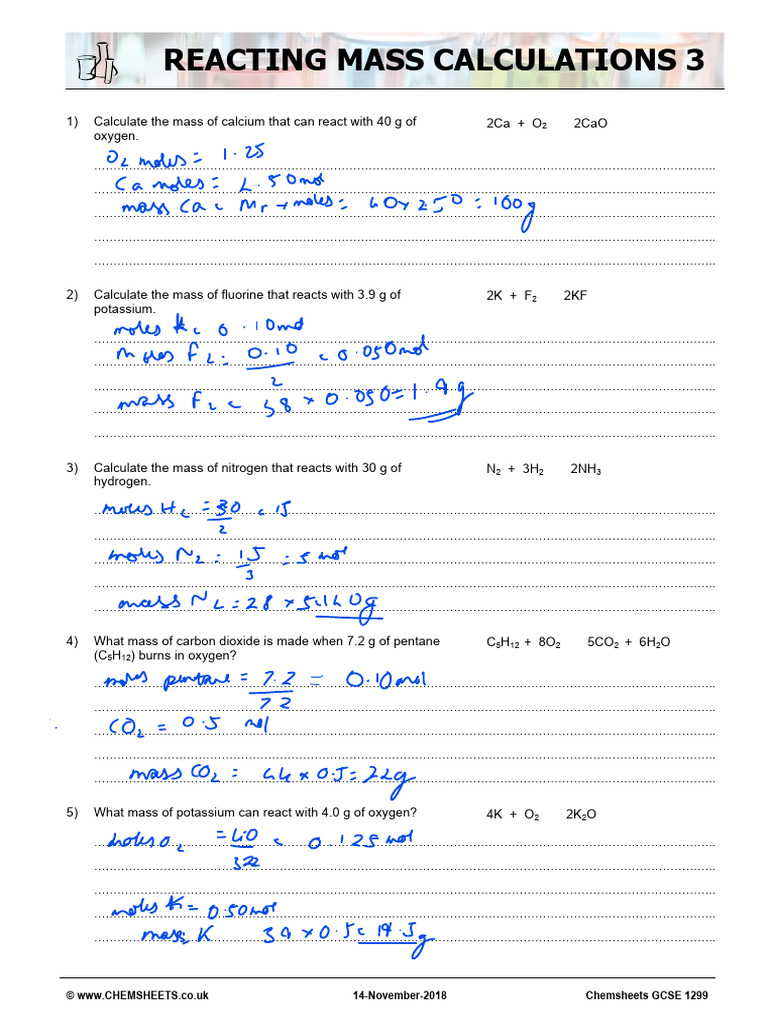 REACTING MASS CALCULATIONS 3
1) Calculate the mass of calcium that can react with 40 g of 2Ca + O₂ 2CaO
oxygen.
O₂ moles = 1.25
Ca moles = 2.50mol
mass Ca = Mr × moles = 40 × 2.50 = 100g
2) Calculate the mass of fluorine that reacts with 3.9 g of 2K + F₂ 2KF
potassium.
moles K = 0.10mol
moles F₂ = 0.10/2 = 0.050mol
mass F₂ = 38 × 0.050 = 1.9g
3) Calculate the mass of nitrogen that reacts with 30 g of N₂ + 3H₂ 2NH₃
hydrogen.
moles H₂ = 30/2 = 15
moles N₂ = 15/3 = 5 mol
mass N₂ = 28 × 5 = 140g
4) What mass of carbon dioxide is made when 7.2 g of pentane C₅H₁₂ + 8O₂ 5CO₂ + 6H₂O
(C₅H₁₂) burns in oxygen?
moles pentane = 7.2/72 = 0.10mol
CO₂ = 0.5 mol
mass CO₂ = 44 × 0.5 = 22g
5) What mass of potassium can react with 4.0 g of oxygen? 4K + O₂ 2K₂O
moles O₂ = 4.0/32 = 0.125mol
moles K = 0.50mol
mass K 39 × 0.5 = 19.5g
© www.CHEMSHEETS.co.uk 14-November-2018 Chemsheets GCSE 1299